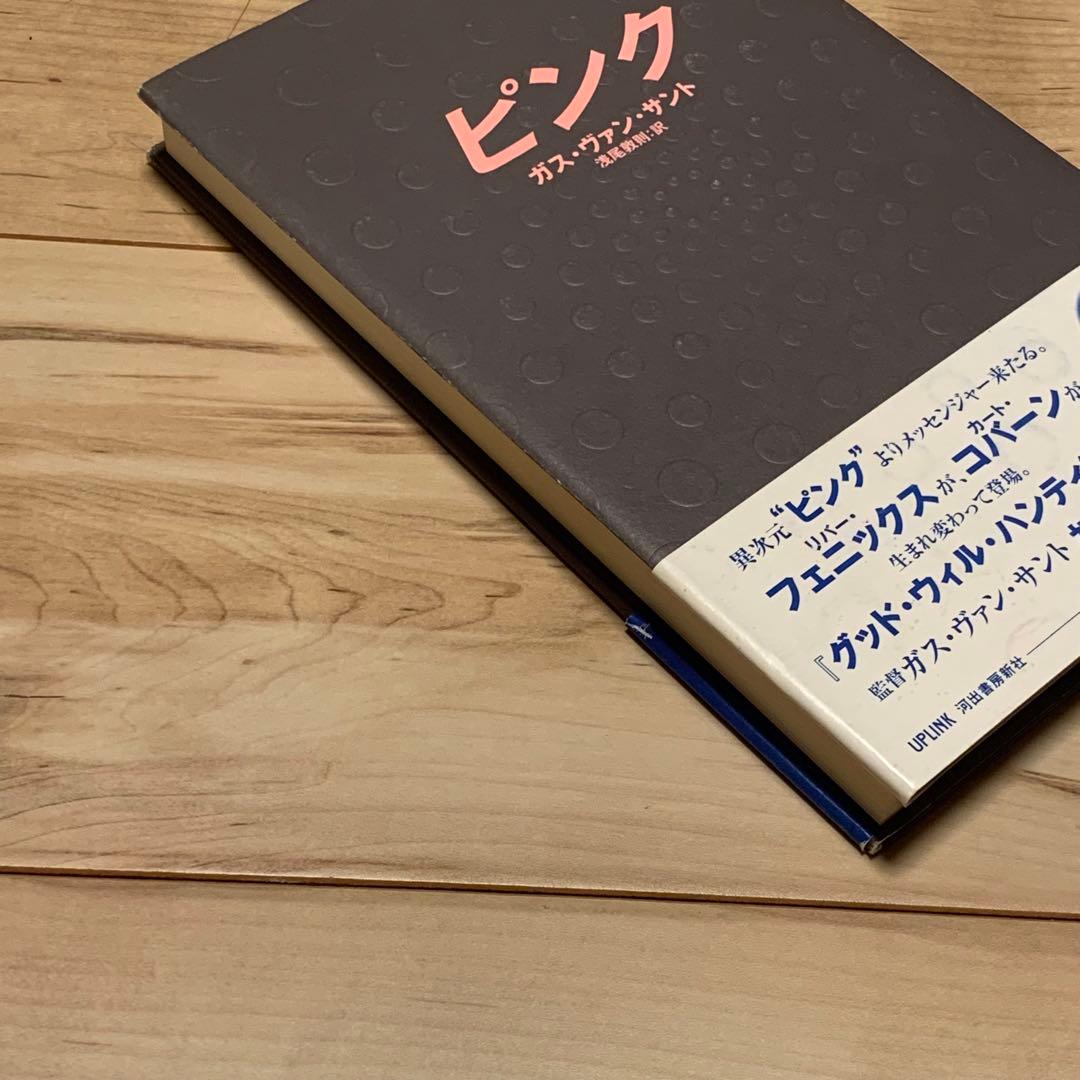 ピンク
ガス・ヴァン・サント
浅尾敦則:訳
異次元“ピンク”よりメッセンジャー来たる。
リバー・ カート・
フェニックスが、コバーンが
生まれ変わって登場。
『グッド・ウィル・ハンティ
監督ガス・ヴァン・サント
UPLINK 河出書房新社